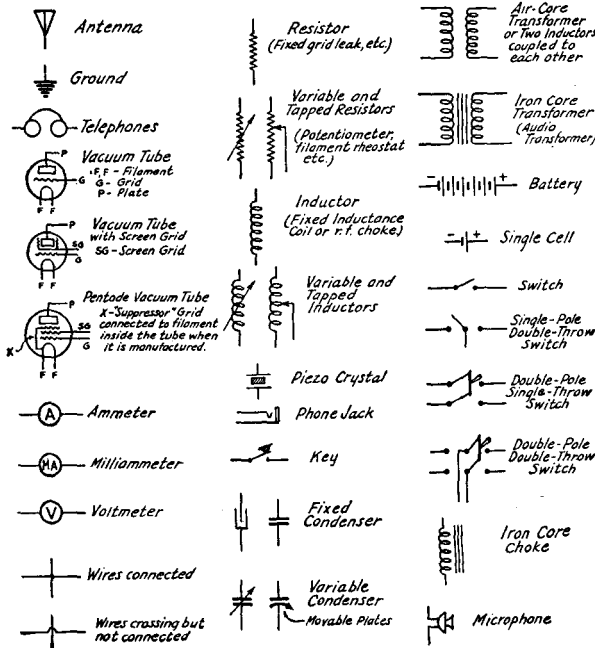 Antenna
Ground
Telephones
P
Vacuum Tube
F,F - Filament
G - Grid
P - Plate
G
F F
P
Vacuum Tube
with Screen Grid
SG - Screen Grid
SG
G
F F
P
Pentode Vacuum Tube
X-"Suppressor" Grid
connected to filament
inside the tube when
it is manufactured.
SG
G
X
F F
A
Ammeter
MA
Milliammeter
V
Voltmeter
Wires connected
Wires crossing but
not connected
Resistor
(Fixed grid leak, etc.)
Variable and
Tapped Resistors
(Potentiometer,
filament rheostat
etc.)
Inductor
(Fixed Inductance
Coil or r.f. choke)
Variable and
Tapped
Inductors
Piezo Crystal
Phone Jack
Key
Fixed
Condenser
Variable
Condenser
Movable Plates
Air-Core
Transformer
or Two Inductors
coupled to
each other
Iron Core
Transformer
(Audio
Transformer)
- +
Battery
- +
Single Cell
Switch
Single-Pole
Double-Throw
Switch
Double-Pole
Single-Throw
Switch
Double-Pole
Double-Throw
Switch
Iron Core
Choke
Microphone